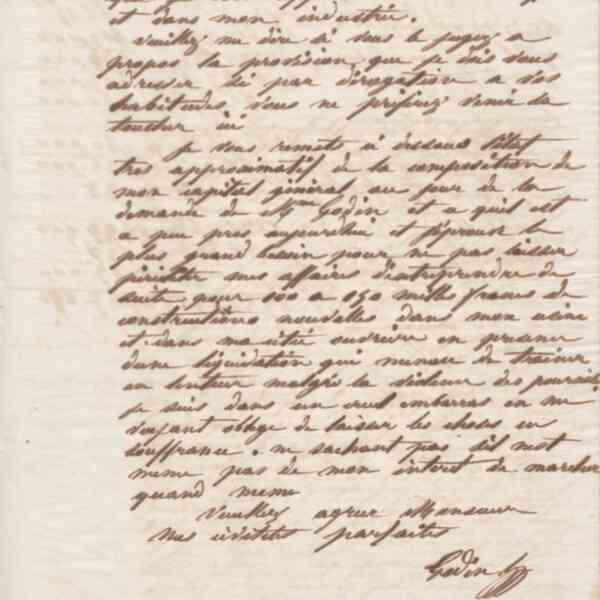 et dans mon industrie.
Veuillez me dire si vous le jugez a
propos la provision que je dois vous
adresser si par dérogation a vos
habitudes vous ne préférez venir la
toucher ici
Je vous remets ci dessous l'état
tres approximatif de la composition de
mon capital général au jour de la
demande de Mme Godin et a quil est
a peu pres aujourdhui et j'éprouve le
plus grand besoin pour ne pas laisser
péricliter mes affaires d'entreprendre de
suite pour 100 a 150 mille francs de
constructions nouvelles dans mon usine
et dans ma cité ouvrière en presence
dune liquidation qui menace de trainer
en lenteur malgré la vigueur des poursuites
je suis dans un cruel embarras en me
voyant obligé de laisser les choses en
souffrance. ne sachant pas sil nest
meme pas de mon intéret de marcher
quand meme
Veuillez agréer Monsieur
mes civilités parfaites
Godin